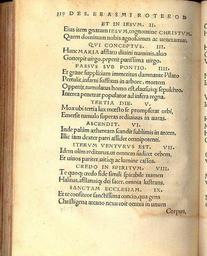 DES. ERASMI ROTEROD
ET IN IESVM. II.
Eius item gnatum IESVM, cognomine CHRISTVM,
Quem dominum nobis agnoscimus
QVI CONCEPTVS. III.
Hunc MARIA afflatu divini numinis, alvo
Concepit virgo, peperit purissima virgo.
PASSVS SVB PONTIO. IIII.
Et grave supplicium immeritus damnante Pilato
Pertulit, infami suffixus in arbore, mortem
Oppetiit, tumulatus humo est, claususque sepulchro.
Interea penetrat populator ad infera regna.
TERTIA DIE. V.
Mox ubi tertia lux moesto se prompserat orbi,
Emersit tumulo superas redivivus in auras.
ASCENDIT. VI.
Inde palam aetheream scandit sublimis in arcem.
Illic iam dexter parri assidet omnipotenti.
ITERVM VENTVRVS EST. VII.
Idem olim rediturus, ut omnes iudicet orbem,
Et quos pariter,
CREDO IN SPIRITVM. VIII.
Te quoque credo fide simili
Halitus, afflatusque dei sacer, omnia lustrans.
SANCTAM ECCLESIAM. IX.
Et te confiteor sanctissima concio, qua gens
Christigena arcano nexu coit omnis in unum
Corpus,